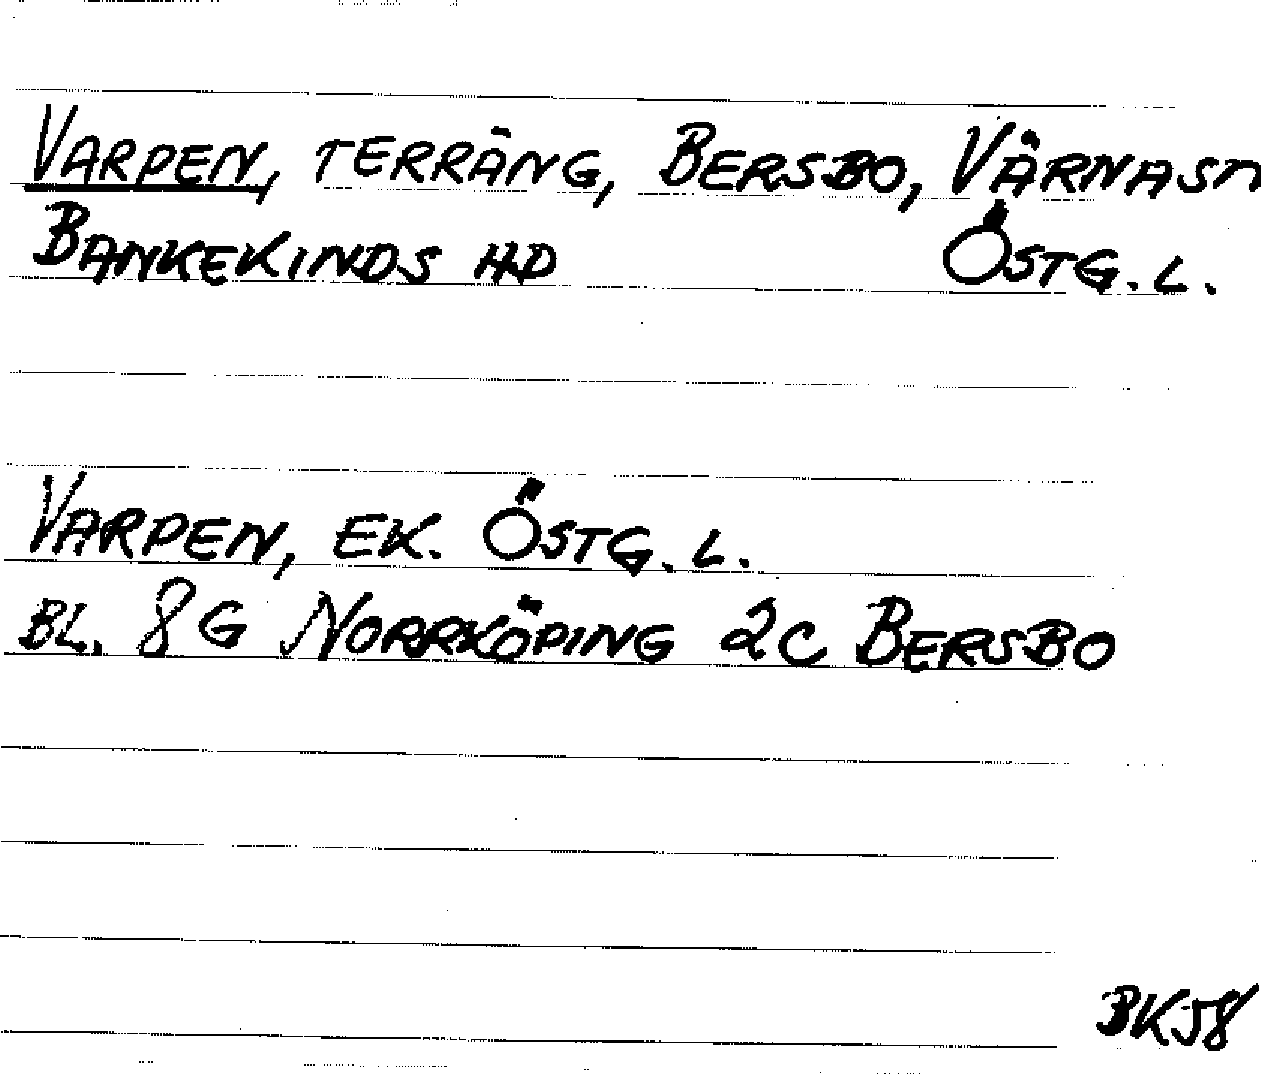 VARPEN, TERRÄNG, BERSBO, VÄRNASN
BANKEKINDS HD ÖSTG. L.
VARPEN, EK. ÖSTG. L.
BL. 8G NORRKÖPING 2C BERSBO
BK58